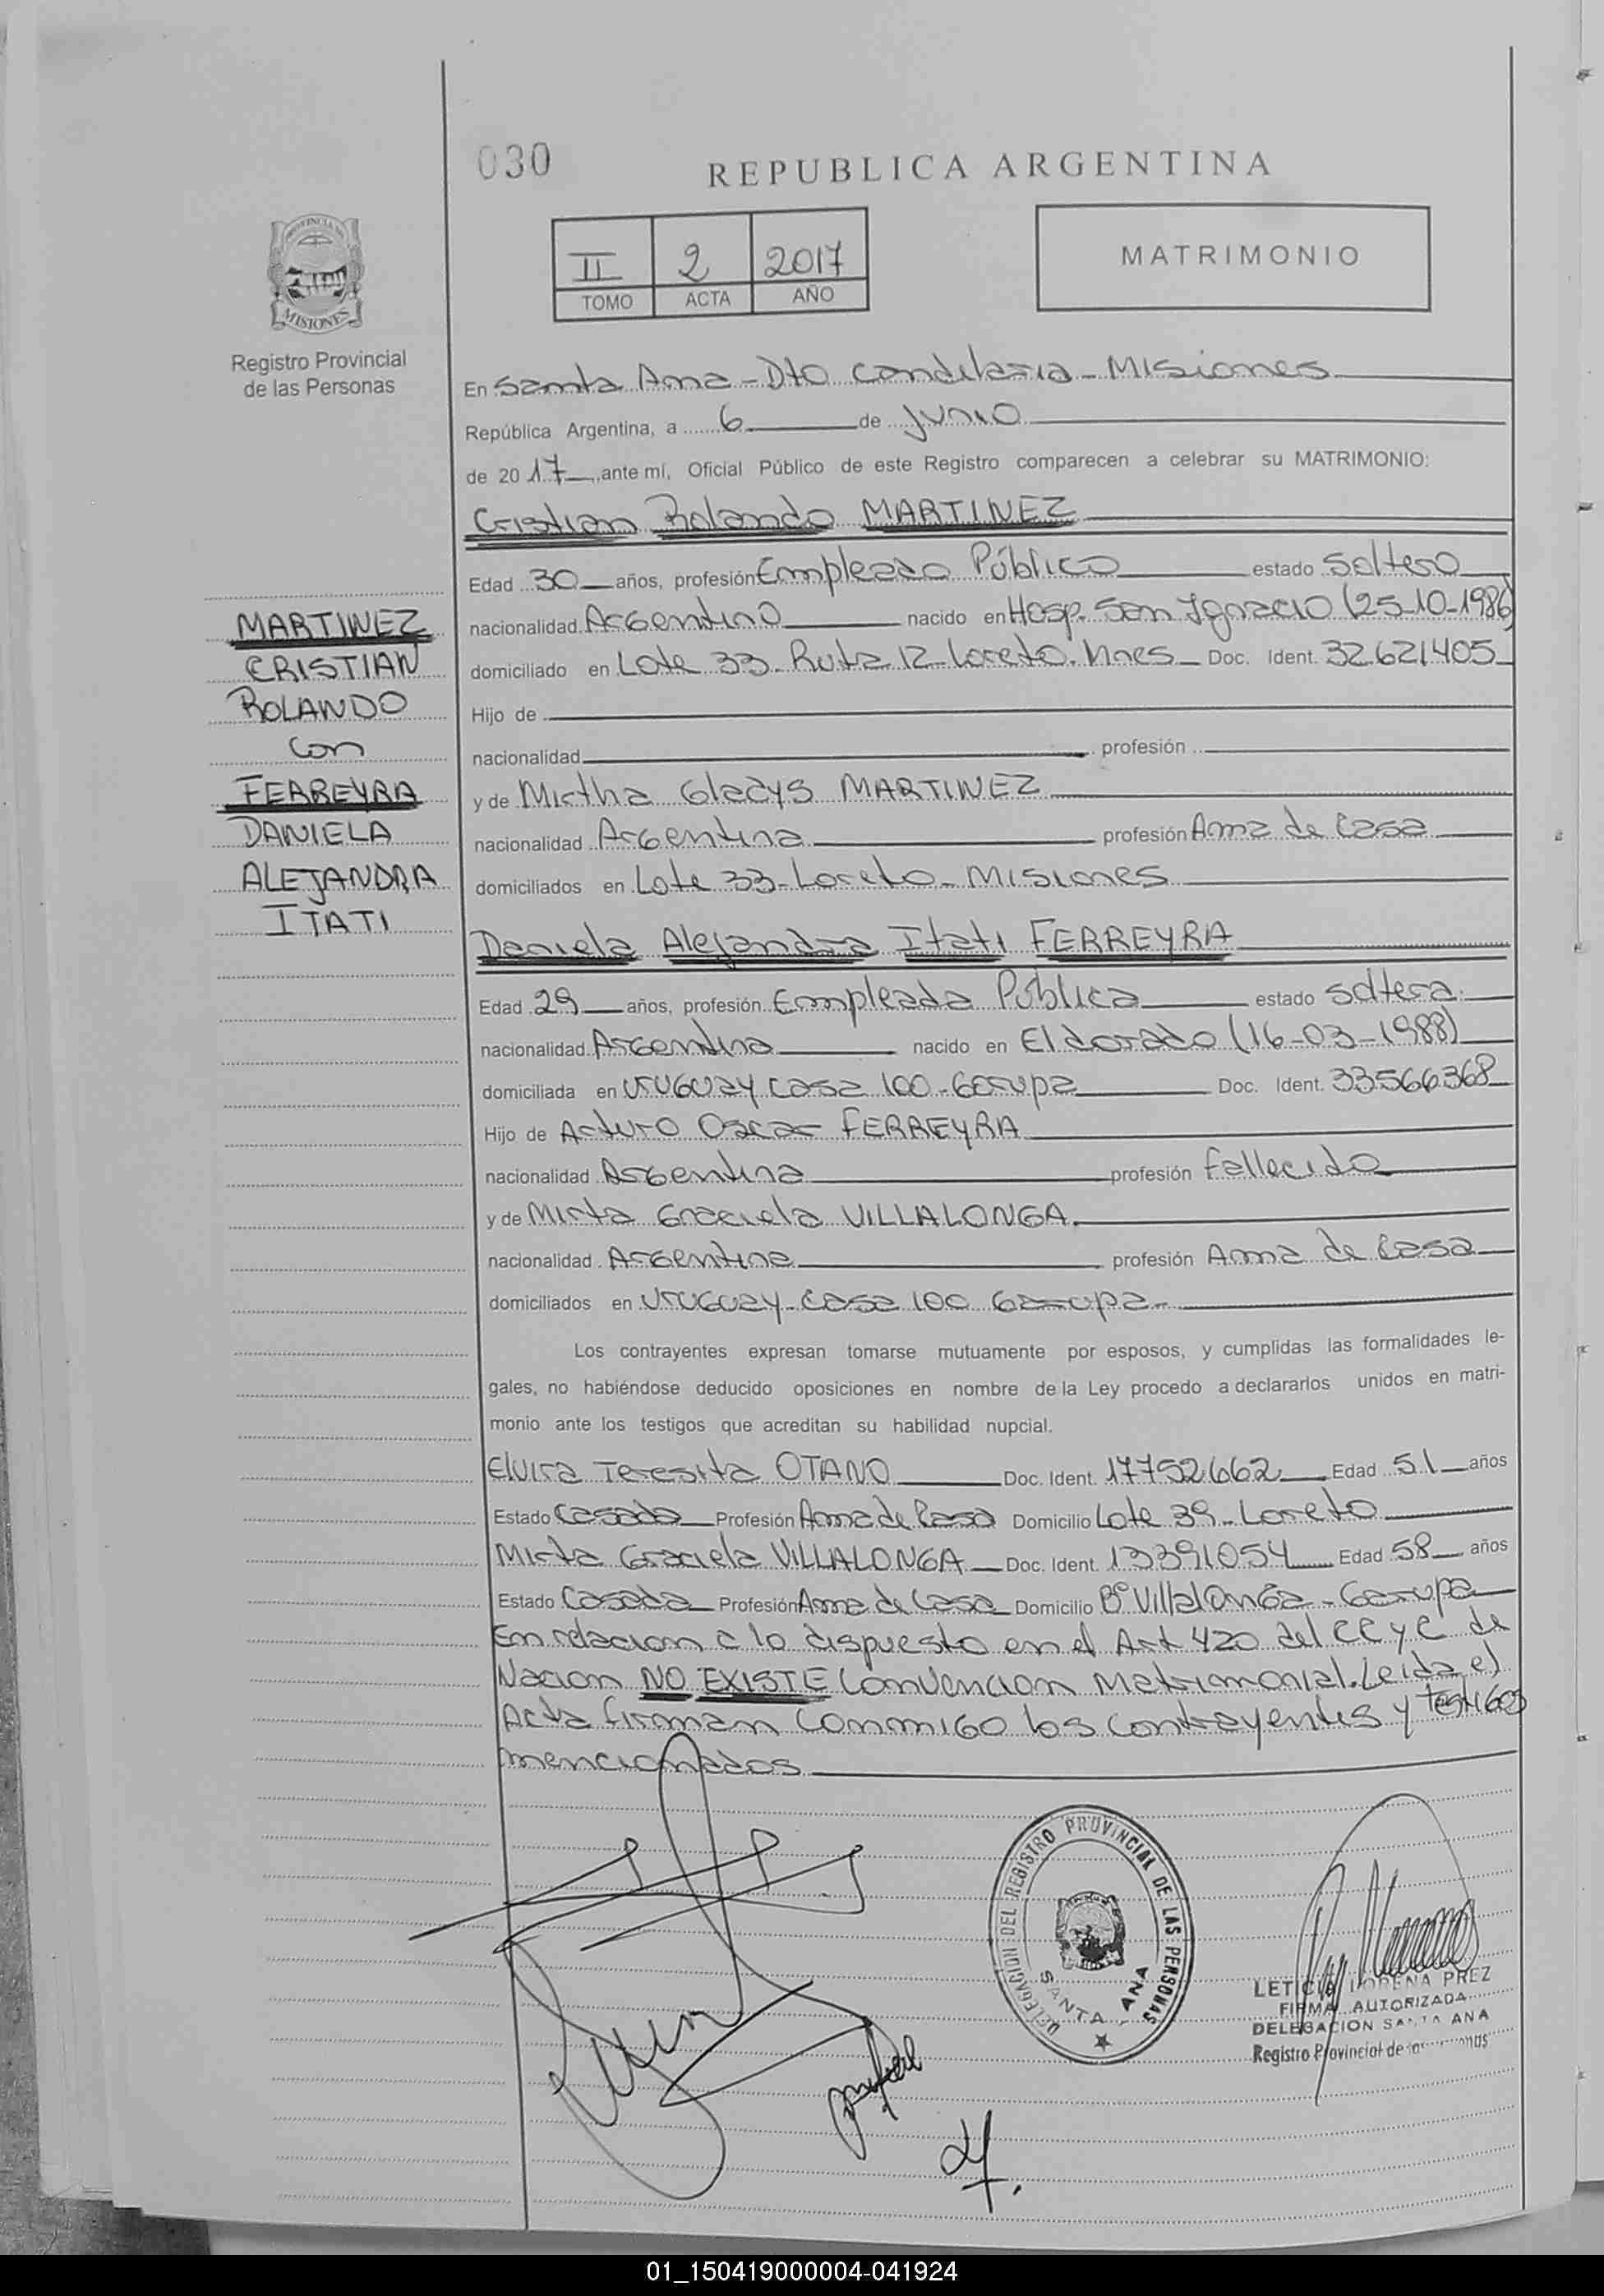 030
REPUBLICA ARGENTINA
II 2 2017
TOMO ACTA AÑO
MATRIMONIO
MISIONES
Registro Provincial
de las Personas
En Santa Ana - Dto Candelaria - Misiones
República Argentina, a 6 de junio
de 2017, ante mí, Oficial Público de este Registro comparecen a celebrar su MATRIMONIO:
Cristian Rolando MARTINEZ
Edad 30 años, profesión Empleado Público estado Soltero
nacionalidad Argentino nacido en Hosp. San Ignacio (25-10-1986)
domiciliado en Lote 33. Ruta 12 - Loreto. Mnes Doc. Ident. 32.621405
Hijo de
nacionalidad profesión
y de Mirtha Gladys MARTINEZ
nacionalidad Argentina profesión Ama de Casa
domiciliados en Lote 33 - Loreto - Misiones
MARTINEZ
CRISTIAN
ROLANDO
con
FERREYRA
DANIELA
ALEJANDRA
ITATI
Daniela Alejandra Itati FERREYRA
Edad 29 años, profesión Empleada Pública estado Soltera
nacionalidad Argentina nacido en Eldorado (16-03-1988)
domiciliada en Uruguay Casa 100 - Garupa Doc. Ident. 33566368
Hijo de Arturo Oscar FERREYRA
nacionalidad Argentina profesión fallecido
y de Mirta Graciela VILLALONGA.
nacionalidad Argentina profesión Ama de Casa
domiciliados en Uruguay - Casa 100 Garupa -
Los contrayentes expresan tomarse mutuamente por esposos, y cumplidas las formalidades le-
gales, no habiéndose deducido oposiciones en nombre de la Ley procedo a declararlos unidos en matri-
monio ante los testigos que acreditan su habilidad nupcial.
Elvira Teresita OTANO Doc. Ident. 17752662 Edad 51 años
Estado Casada Profesión Ama de Casa Domicilio Lote 39 - Loreto
Mirta Graciela VILLALONGA Doc. Ident. 13391054 Edad 58 años
Estado Casada Profesión Ama de Casa Domicilio B° Villalonga - Garupa
En relacion a lo dispuesto en el Art 420 del CC y C de
Nacion NO EXISTE Convencion Matrimonial. Leida el
Acta firman conmigo los contrayentes y testigos
mencionados
DELEGACION DEL REGISTRO PROVINCIAL DE LAS PERSONAS
SANTA ANA
LETICIA LORENA PREZ
FIRMA AUTORIZADA
DELEGACION SANTA ANA
Registro Provincial de
01_150419000004-041924